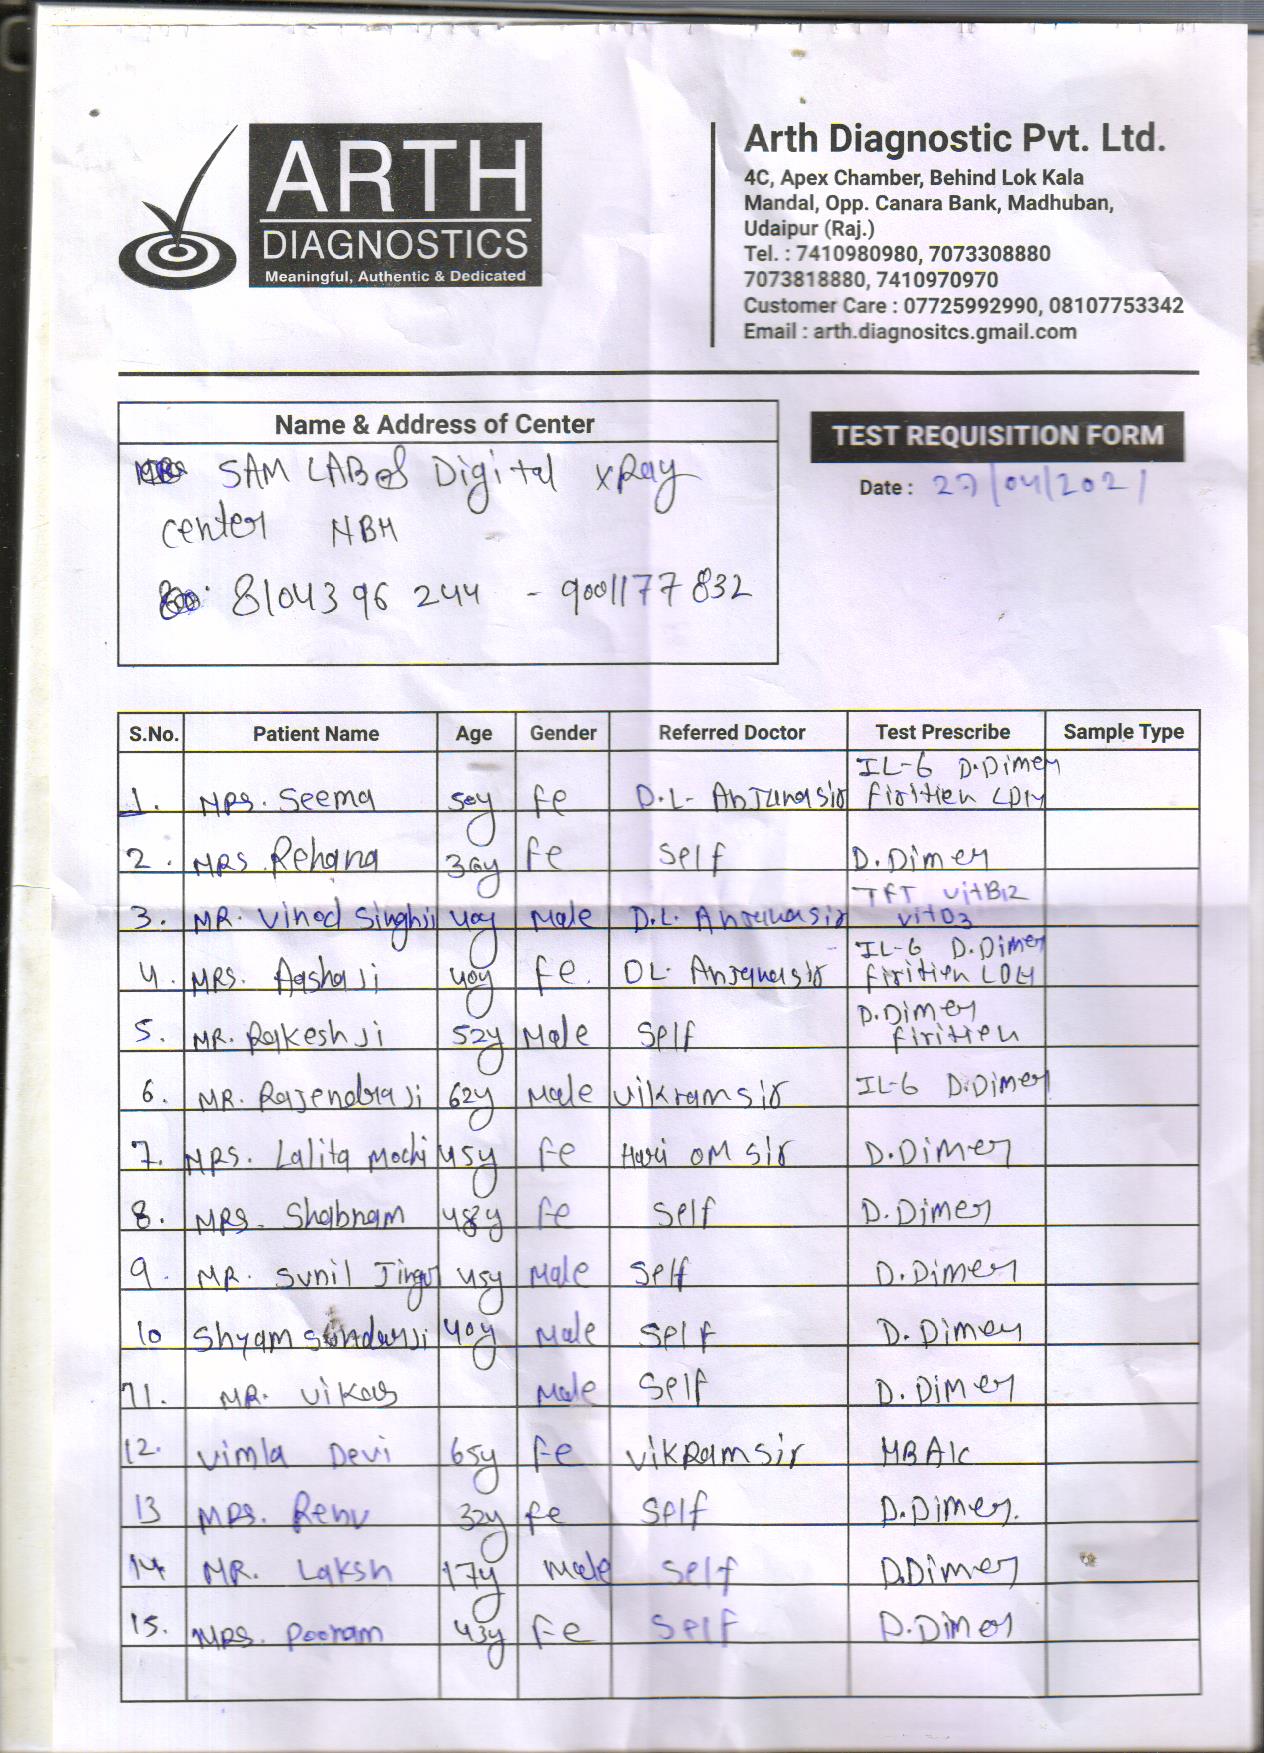 ARTH
DIAGNOSTICS
Meaningful, Authentic & Dedicated
Arth Diagnostic Pvt. Ltd.
4C, Apex Chamber, Behind Lok Kala
Mandal, Opp. Canara Bank, Madhuban,
Udaipur (Raj.)
Tel. : 7410980980, 7073308880
7073818880, 7410970970
Customer Care : 07725992990, 08107753342
Email : arth.diagnositcs.gmail.com
Name & Address of Center
SAM LAB & Digital xRay
center NBH
8104396244 - 9001177832
TEST REQUISITION FORM
Date : 27/04/2021
S.No. Patient Name Age Gender Referred Doctor Test Prescribe Sample Type
IL-6 D.Dimer
1. MRS. Seema 50y fe D.L. Anjanasir firitien LDH
2. MRS Rehana 36y fe Self D.Dimer
TFT vitB12
3. MR. Vinod Singhji 40y Male D.L. Anjanasir vitD3
IL-6 D.Dimer
4. MRS. Aashaji 40y fe. DL. Anjanasir firitien LDH
D.Dimer
5. MR. Rakesh Ji 52y Male Self firitien
6. MR. Rajendra Ji 62y Male vikram sir IL-6 D.Dimer
7. MRS. Lalita Mochi 45y fe Hari OM sir D.Dimer
8. MRS. Shabnam 48y fe Self D.Dimer
9. MR. Sunil 45y Male Self D.Dimer
10 Shyam Sundarji 40y Male Self D.Dimer
11. MR. Vikas Male Self D.Dimer
12. Vimla Devi 65y fe vikRam sir HBA1c
13 MRS. Renu 32y fe Self D.Dimer.
14 MR. Laksh 17y Male Self D.Dimer
15. MRS. Poonam 43y Fe Self D.Dimer